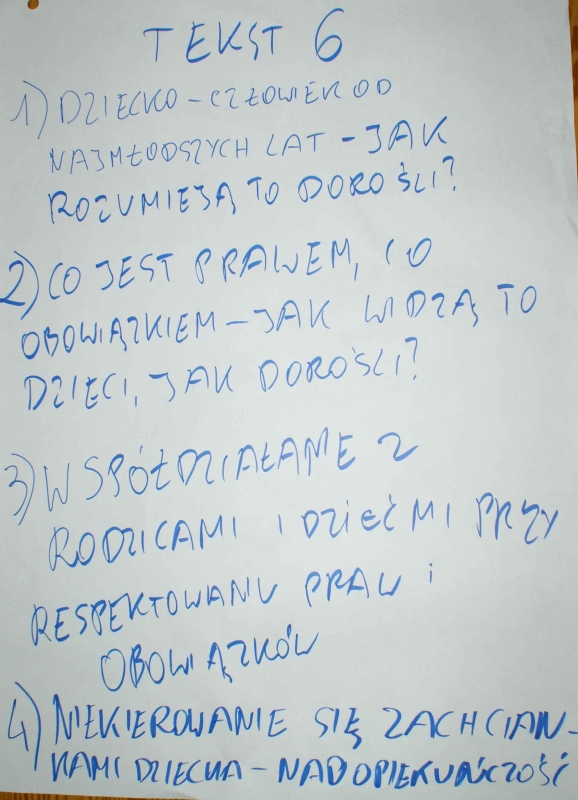 TEKST 6
1) DZIECKO - CZŁOWIEK OD
NAJMŁODSZYCH LAT - JAK
ROZUMIEJĄ TO DOROŚLI?
2) CO JEST PRAWEM, CO
OBOWIĄZKIEM - JAK WIDZĄ TO
DZIECI, JAK DOROŚLI?
3) WSPÓŁDZIAŁANIE Z
RODZICAMI I DZIEĆMI PRZY
RESPEKTOWANIU PRAW i
OBOWIĄZKÓW
4) NIEKIEROWANIE SIĘ ZACHCIAN-
KAMI DZIECKA - NADOPIEKUŃCZOŚĆ